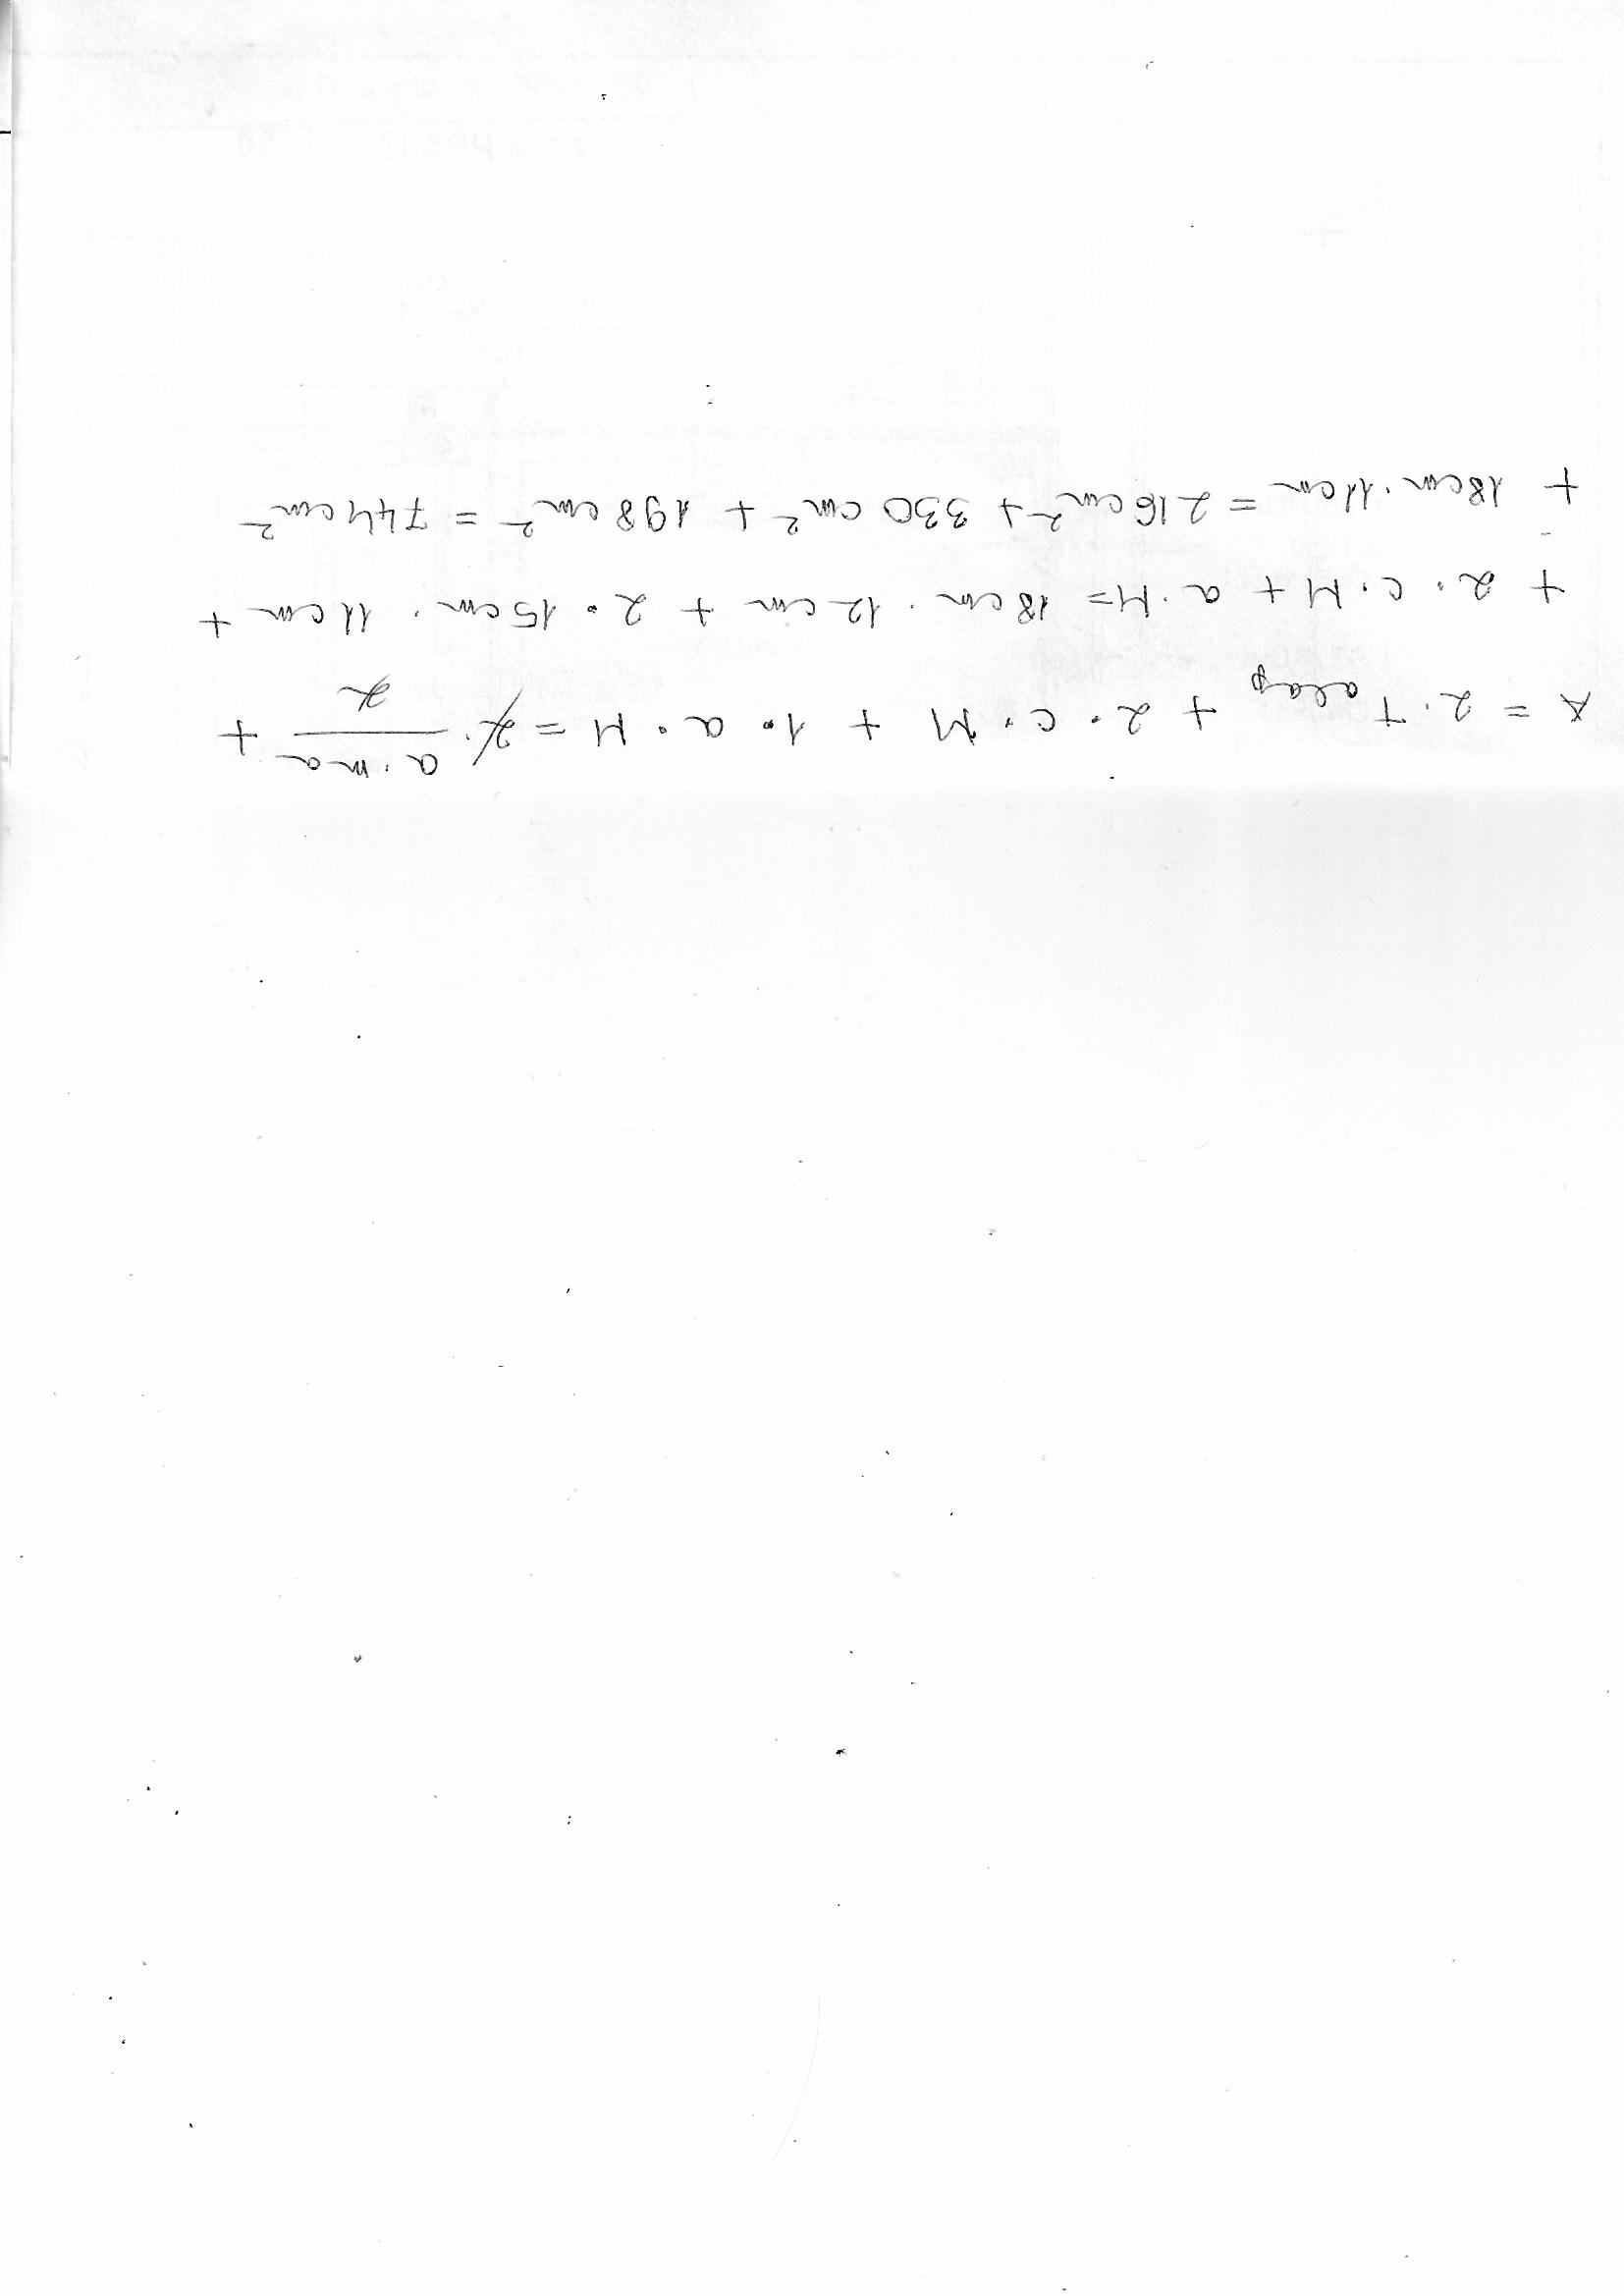 A = 2·T alap + 2·c·M + 1·a·M = 2·(a·ma)/2 +
+ 2·c·M + a·M = 18cm · 12cm + 2·15cm · 11cm +
+ 18cm·11cm = 216cm² + 330cm² + 198cm² = 744cm²